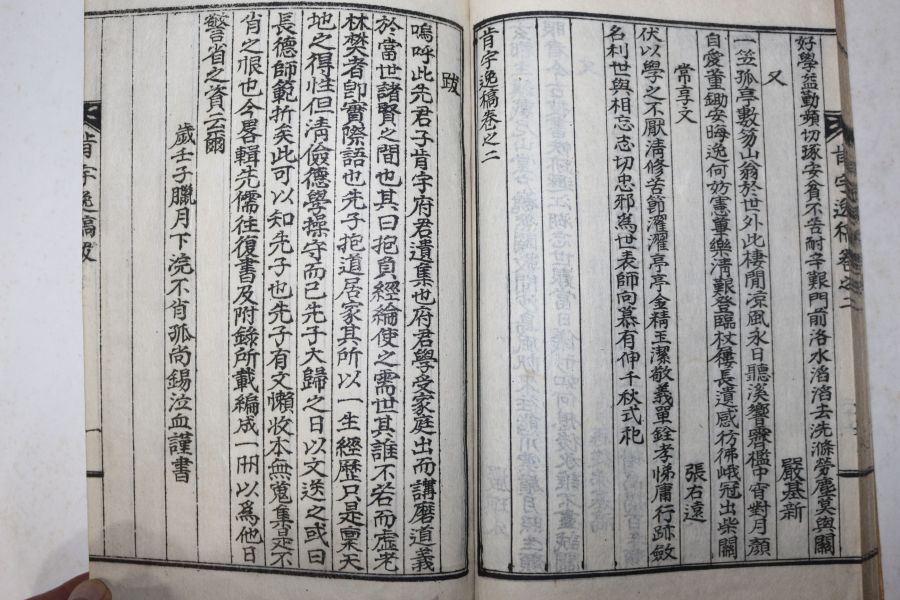 好學益勤頻切琢安貧不苦耐辛艱門前洛水滔滔去洗滌勞塵莫與關
嚴基新
又
一笠孤亭數笏山翁於世外此棲閒凉風永日聽溪響霽檻中宵對月顏
自愛董鋤安晦逸何妨憲蓽樂淸艱登臨杖屨長遺感彷彿峨冠出柴關
張右遠
常享文
伏以學之不厭淸修苦節濯濯亭亭金精玉潔敬義單銓孝悌庸行跡斂
名利世與相忘志切忠邪爲世表師向慕有伸千秋式礼
肯宇逸稿卷之二
肯宇逸稿卷之二
跋
嗚呼此先君子肯宇府君遺集也府君學受家庭出而講磨道義
於當世諸賢之間也其曰抱負經綸使之需世其誰不若而虛老
林樊者卽實際語也先子抱道居家其所以一生經歷只是稟天
地之得性但淸儉德學操守而已先子大歸之日以文送之或曰
長德師範折矣此可以知先子也先子有文懶收本無蒐集是不
肖之恨也今畧輯先儒往復書及附錄所載編成一冊以為他日
警省之資云爾
歲壬子臘月下浣不肖孤尚錫泣血謹書
肯宇逸稿跋